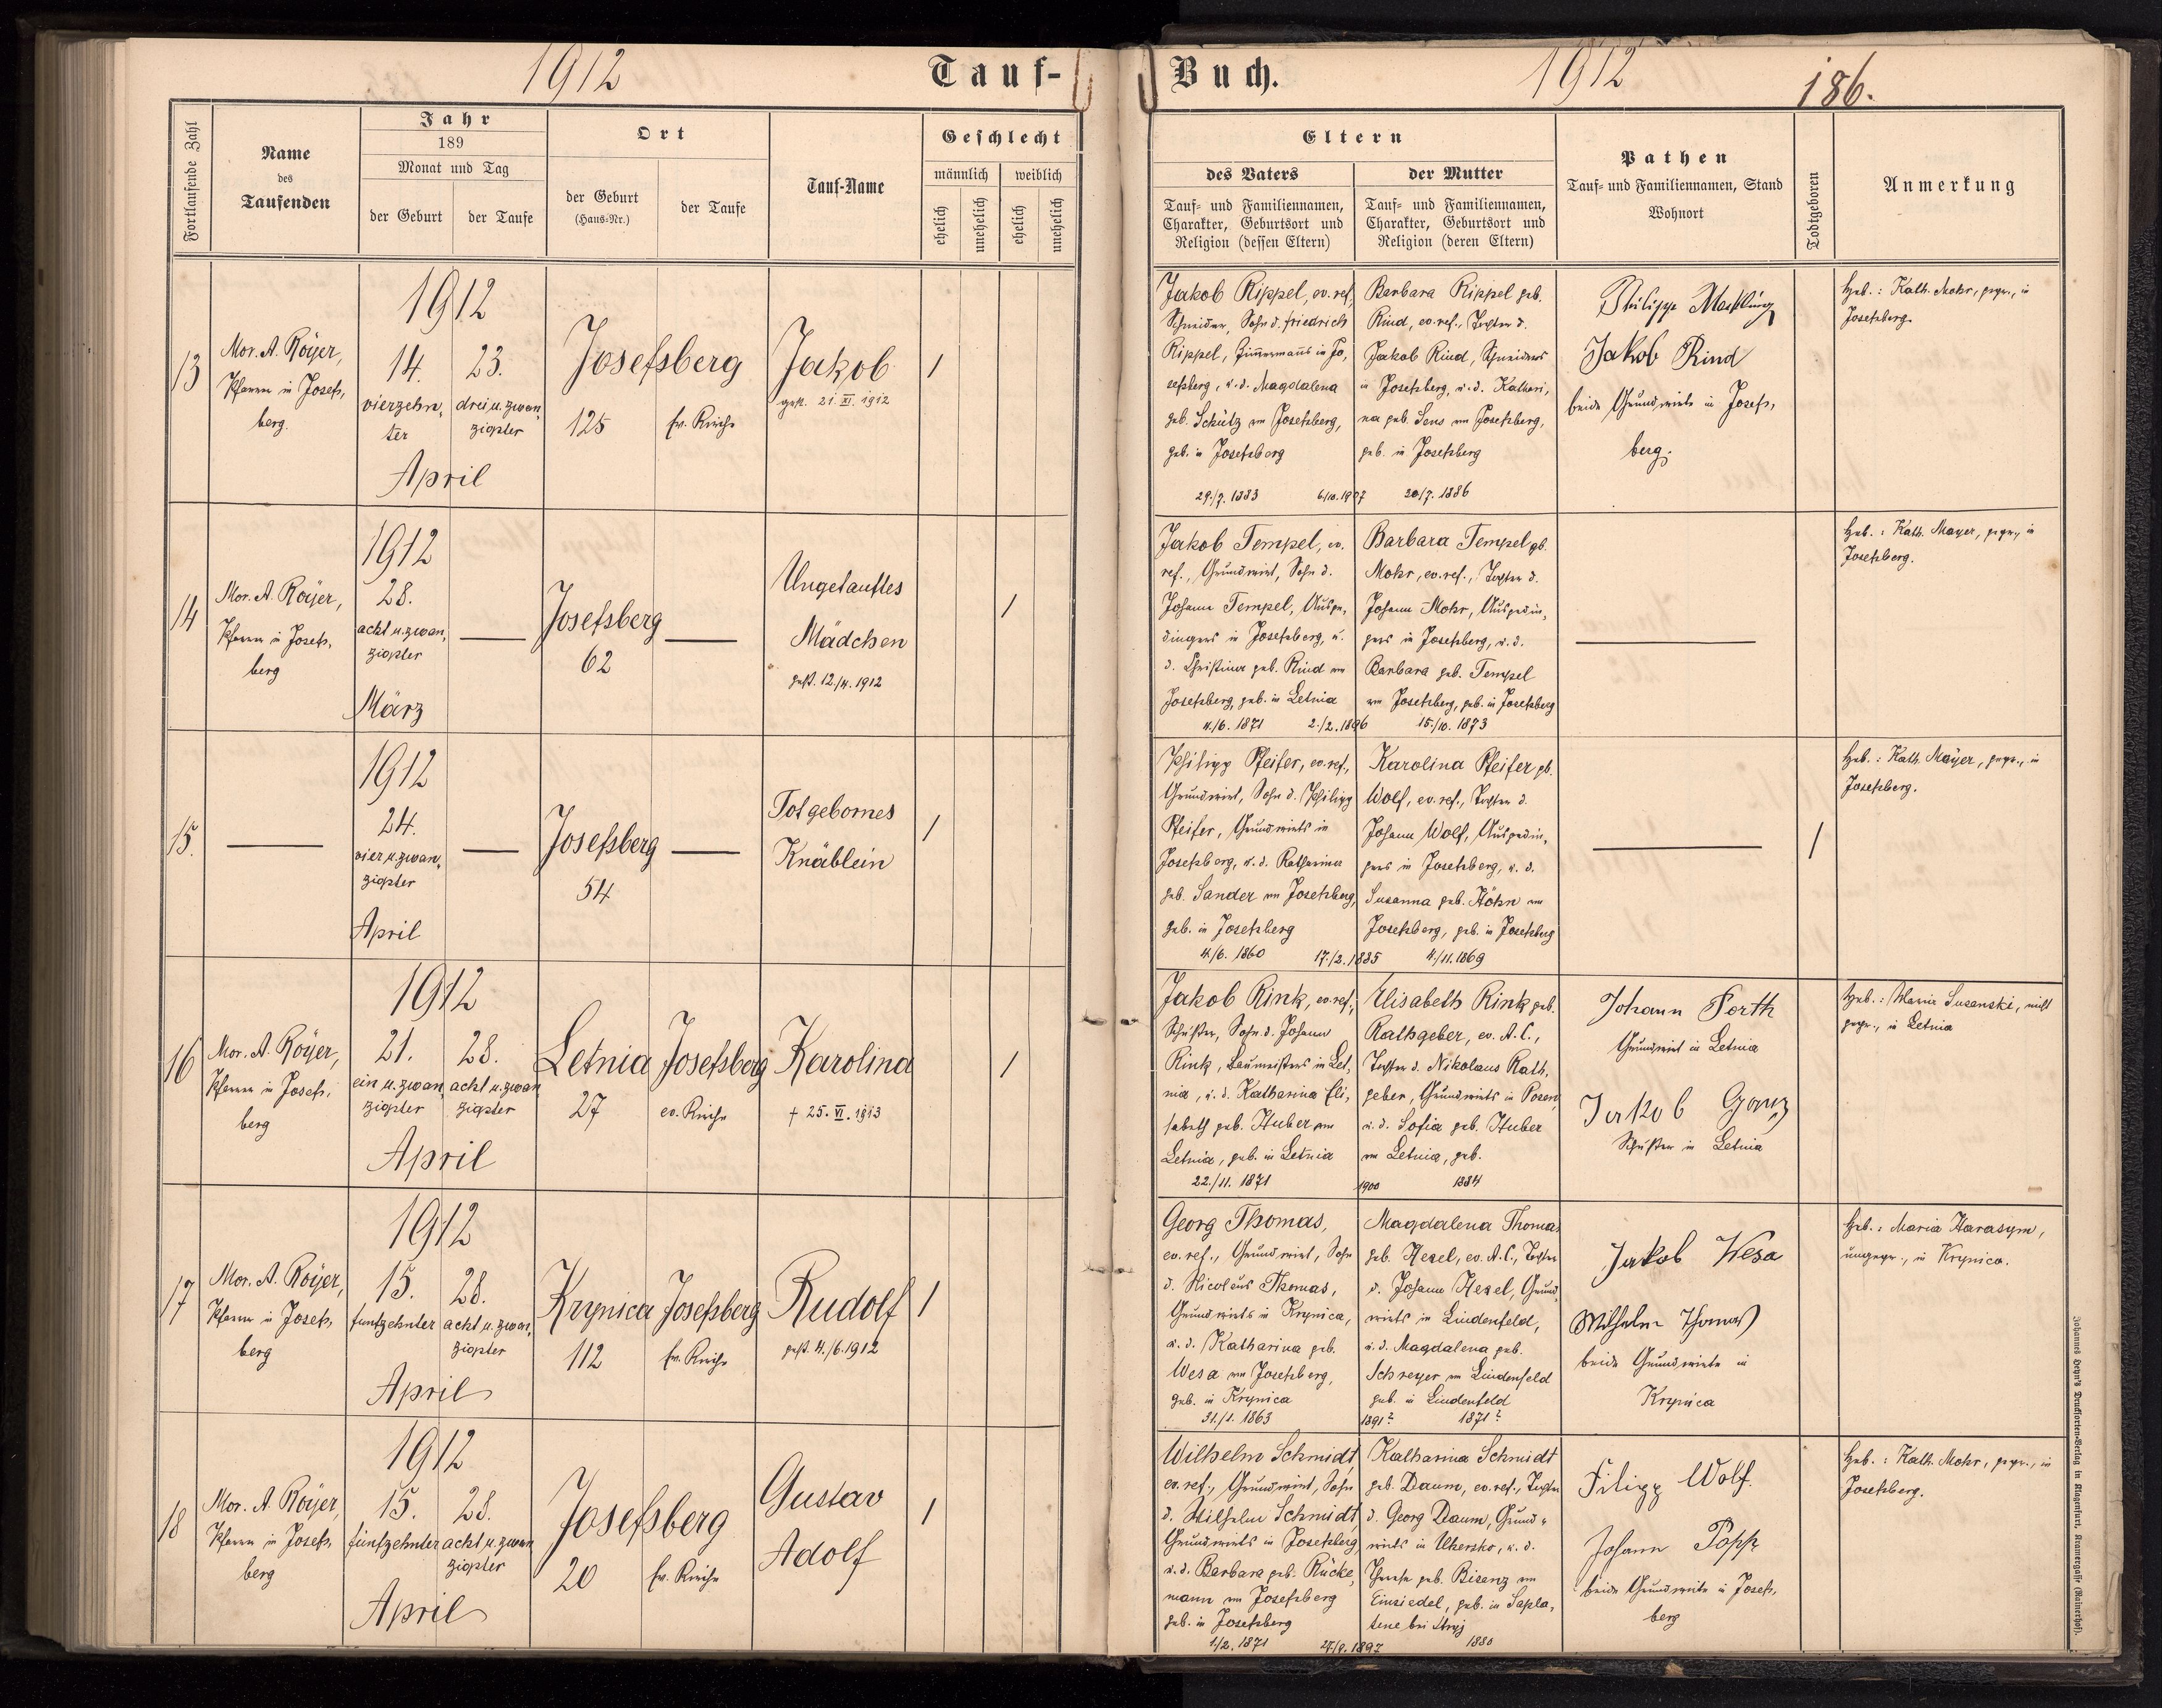 1912
Tauf-
Buch.
1912
186.
Fortlaufende Zahl
Name
des
Taufenden
Jahr
189
Monat und Tag
der Geburt
der Taufe
Ort
der Geburt
(Haus-Nr.)
der Taufe
Tauf-Name
Geschlecht
männlich
weiblich
ehelich
unehelich
ehelich
unehelich
Eltern
des Vaters
Tauf- und Familiennamen,
Charakter, Geburtsort und
Religion (dessen Eltern)
der Mutter
Tauf- und Familiennamen,
Charakter, Geburtsort und
Religion (deren Eltern)
Pathen
Tauf- und Familiennamen, Stand
Wohnort
Todtgeboren
Anmerkung
13
Mor. A. Royer,
Pfarrer in Josefs,
berg.
1912
14.
vierzehn,
ter
23.
drei u. zwan,
zigster
April
Josefsberg
125
Ev. Kirche
Jakob
gest. 21. XI. 1912
1
Jakob Rippel, ev. ref.,
Schneider, Sohn d. Friedrich
Rippel, Zimmermanns in Jo,
sefsberg, u. d. Magdalena
geb. Schütz von Josefsberg,
geb. in Josefsberg
29./7. 1883
6/10. 1907
Barbara Rippel geb.
Rind, ev. ref., Tochter d.
Jakob Rind, Schneiders
in Josefsberg, u. d. Kathari,
na geb. Sens von Josefsberg,
geb. in Josefsberg
20/7. 1886
Philipp
Jakob Rind
beide Grundwirte in Josefs,
berg.
Heb.: Kath. Mohr, gepr., in
Josefsberg.
14
Mor. A. Royer,
Pfarrer in Josefs,
berg
1912
28.
acht u. zwan,
zigster
März
Josefsberg
62
Ungetauftes
Mädchen
gest. 12./4. 1912
1
Jakob Tempel, ev.
ref., Grundwirt, Sohn d.
Johann Tempel, Ausge,
dingers in Josefsberg, u.
d. Christina geb. Rind von
Josefsberg, geb. in Letnia
4./6. 1871
2./2. 1896
Barbara Tempel gb.
Mohr, ev. ref., Tochter d.
Johann Mohr, Ausgedin,
gers in Josefsberg, u. d.
Barbara geb. Tempel
von Josefsberg, geb. in Josefsberg
15./10. 1873
Heb.: Kath. Mayer, gepr., in
Josefsberg.
15.
1912
24.
vier u. zwan,
zigster
April
Josefsberg
54
Totgebornes
Knäblein
1
Philipp Pfeifer, ev. ref.,
Grundwirt, Sohn d. Philipp
Pfeifer, Grundwirts in
Josefsberg, u. d. Katharina
geb. Sander von Josefsberg,
geb. in Josefsberg
4./6. 1860
17./2. 1885
Karolina Pfeifer gb.
Wolf, ev. ref., Tochter d.
Johann Wolf, Ausgedin,
gers in Josefsberg, u. d.
Susanna geb. Höhn von
Josefsberg, geb. in Josefsberg
4./11. 1869
1
Heb.: Kath. Mayer, gepr., in
Josefsberg.
16
Mor. A. Royer,
Pfarrer in Josefs,
berg
1912
21.
ein u. zwan,
zigster
28.
acht u. zwan
zigster
April
Letnia
27
Josefsberg
ev. Kirche
Karolina
† 25. VI. 1913
1
Jakob Rink, ev. ref.,
Schuster, Sohn d. Johann
Rink, Baumeisters in Let,
nia, u. d. Katharina Eli,
sabeth geb. Huber von
Letnia, geb. in Letnia
22./11. 1871
1900
Elisabeth Rink geb.
Rathgeber, ev. A. C.,
Tochter d. Nikolaus Rath,
geber, Grundwirts in Posen,
u. d. Sofia geb. Huber
von Letnia, geb.
1884
Johann Porth
Grundwirt in Letnia
Jakob Ganz
Schuster in Letnia
Heb.: Maria Susanski, nicht
gepr., in Letnia
17
Mor. A. Royer,
Pfarrer in Josefs,
berg
1912
15.
fünfzehnter
28.
acht u. zwan,
zigster
April
Krynica
112
Josefsberg
Ev. Kirche
Rudolf
gest. 4./6. 1912
1
Georg Thomas,
ev. ref., Grundwirt, Sohn
d. Nicolaus Thomas,
Grundwirts in Krynica,
u. d. Katharina geb.
Wesa von Josefsberg,
geb. in Krynica
31./1. 1863
1891?
Magdalena Thomas
geb. Hexel, ev. A. C., Tochter
d. Johann Hexel, Grund,
wirts in Lindenfeld,
u. d. Magdalena geb.
Schreyer von Lindenfeld
geb. in Lindenfeld
1871?
Jakob Wesa
Wilhelm Thomas
beide Grundwirte in
Krynica
Heb.: Maria Harasym,
ungepr., in Krynica.
18
Mor. A. Royer,
Pfarrer in Josefs,
berg
1912
15.
fünfzehnter
28.
acht u. zwan
zigster
April
Josefsberg
20
Ev. Kirche
Gustav
Adolf
1
Wilhelm Schmidt,
ev. ref., Grundwirt, Sohn
d. Wilhelm Schmidt,
Grundwirts in Josefsberg,
u. d. Barbara geb. Rücke,
mann von Josefsberg
geb. in Josefsberg
1/2. 1871
27/8. 1897
Katharina Schmidt
geb. Daum, ev. ref., Tochter
d. Georg Daum, Grund-
wirts in Uhersko, u. d.
Therese geb. Bisanz von
Einsiedel, geb. in Sapla,
tene bei Stryj
1880
Filipp Wolf.
Johann Popp
beide Grundwirte in Josefs,
berg
Heb.: Kath. Mohr, gepr., in
Josefsberg.
Johannes Heyn's Drucksorten-Verlag in Klagenfurt, Kramergasse (Rainerhof).